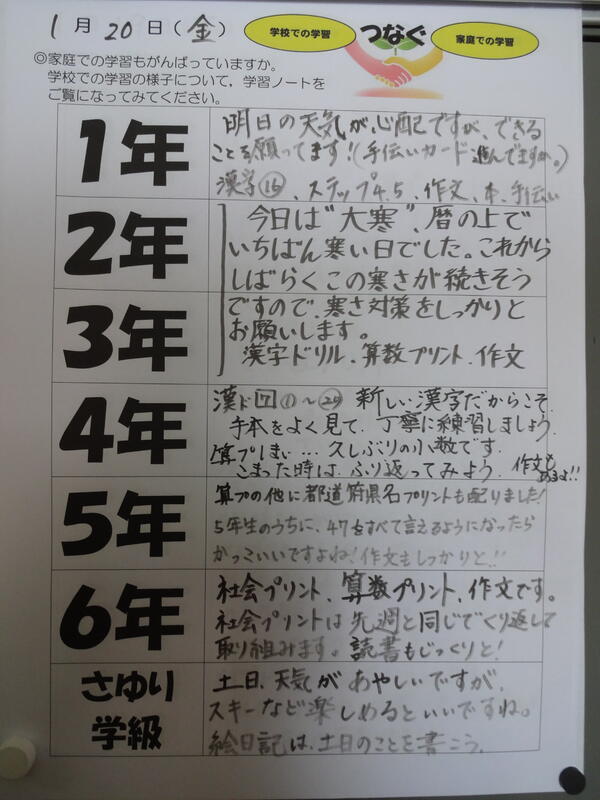 1月20日(金)
学校での学習
つなぐ
家庭での学習
◎家庭での学習もがんばっていますか。
学校での学習の様子について,学習ノートを
ご覧になってみてください。
1年
明日の天気が心配ですが、できる
ことを願ってます!(手伝いカード進んでますか。)
漢字⑯、ステップ4.5、作文、本、手伝い
2年
3年
今日は“大寒”、暦の上で
いちばん寒い日でした。これから
しばらくこの寒さが続きそう
ですので、寒さ対策をしっかりと
お願いします。
漢字ドリル、算数プリント、作文
4年
漢ド⑰①~㉔ 新しい漢字だからこそ
手本をよく見て、丁寧に練習しましょう。
算プしまい…久しぶりの小数です。
こまった時は、ふり返ってみよう。作文も
あるよ!!
5年
算プの他に都道府県名プリントも配りました!
5年生のうちに、47をすべて言えるようになったら
かっこいいですよね!作文もしっかりと!!
6年
社会プリント、算数プリント、作文です。
社会プリントは先週と同じでくり返して
取り組みます。読書もじっくりと!
さゆり
学級
土日、天気があやしいですが、
スキーなど楽しめるといいですね。
絵日記は、土日のことを書こう。